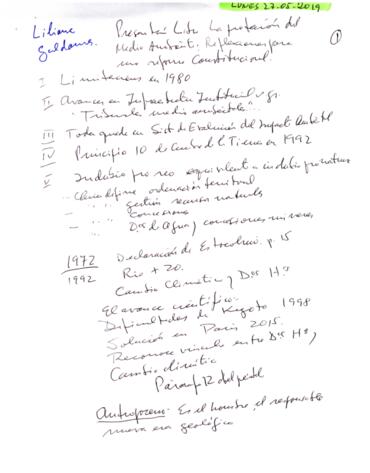 LUNES 27.05-2019
Liliana Galdamez.
Presentación Libro La protección del
Medio Ambiente: Reflexiones para
una reforma Constitucional.
①
I Limitaciones en 1980
II Avances en Infraestructura Institucional v.gr.
"Tribunales medio ambientales".
III Todo quedó en Sist de Evaluación del Impacto Ambiental
IV Principio 10 de la Tierra en 1992
V Indubio pro reo equivalente a indubio pro natura
- Cómo define ordenación territorial
- " " gestión recursos naturales
- " " Concesiones
- " " Dos de Agua y concesiones mineras
1972 Declaración de Estocolmo. p. 15
1992 Rio + 20.
Cambio Climático y Dos Hs
El avance científico.
Dificultades de Kyoto 1998
Solución en Paris 2015.
Reconoce vínculo entre Dos Hs y
Cambio climático
Párrafo 12 del
Antropoceno: Es el hombre, el responsable
nueva era geológica